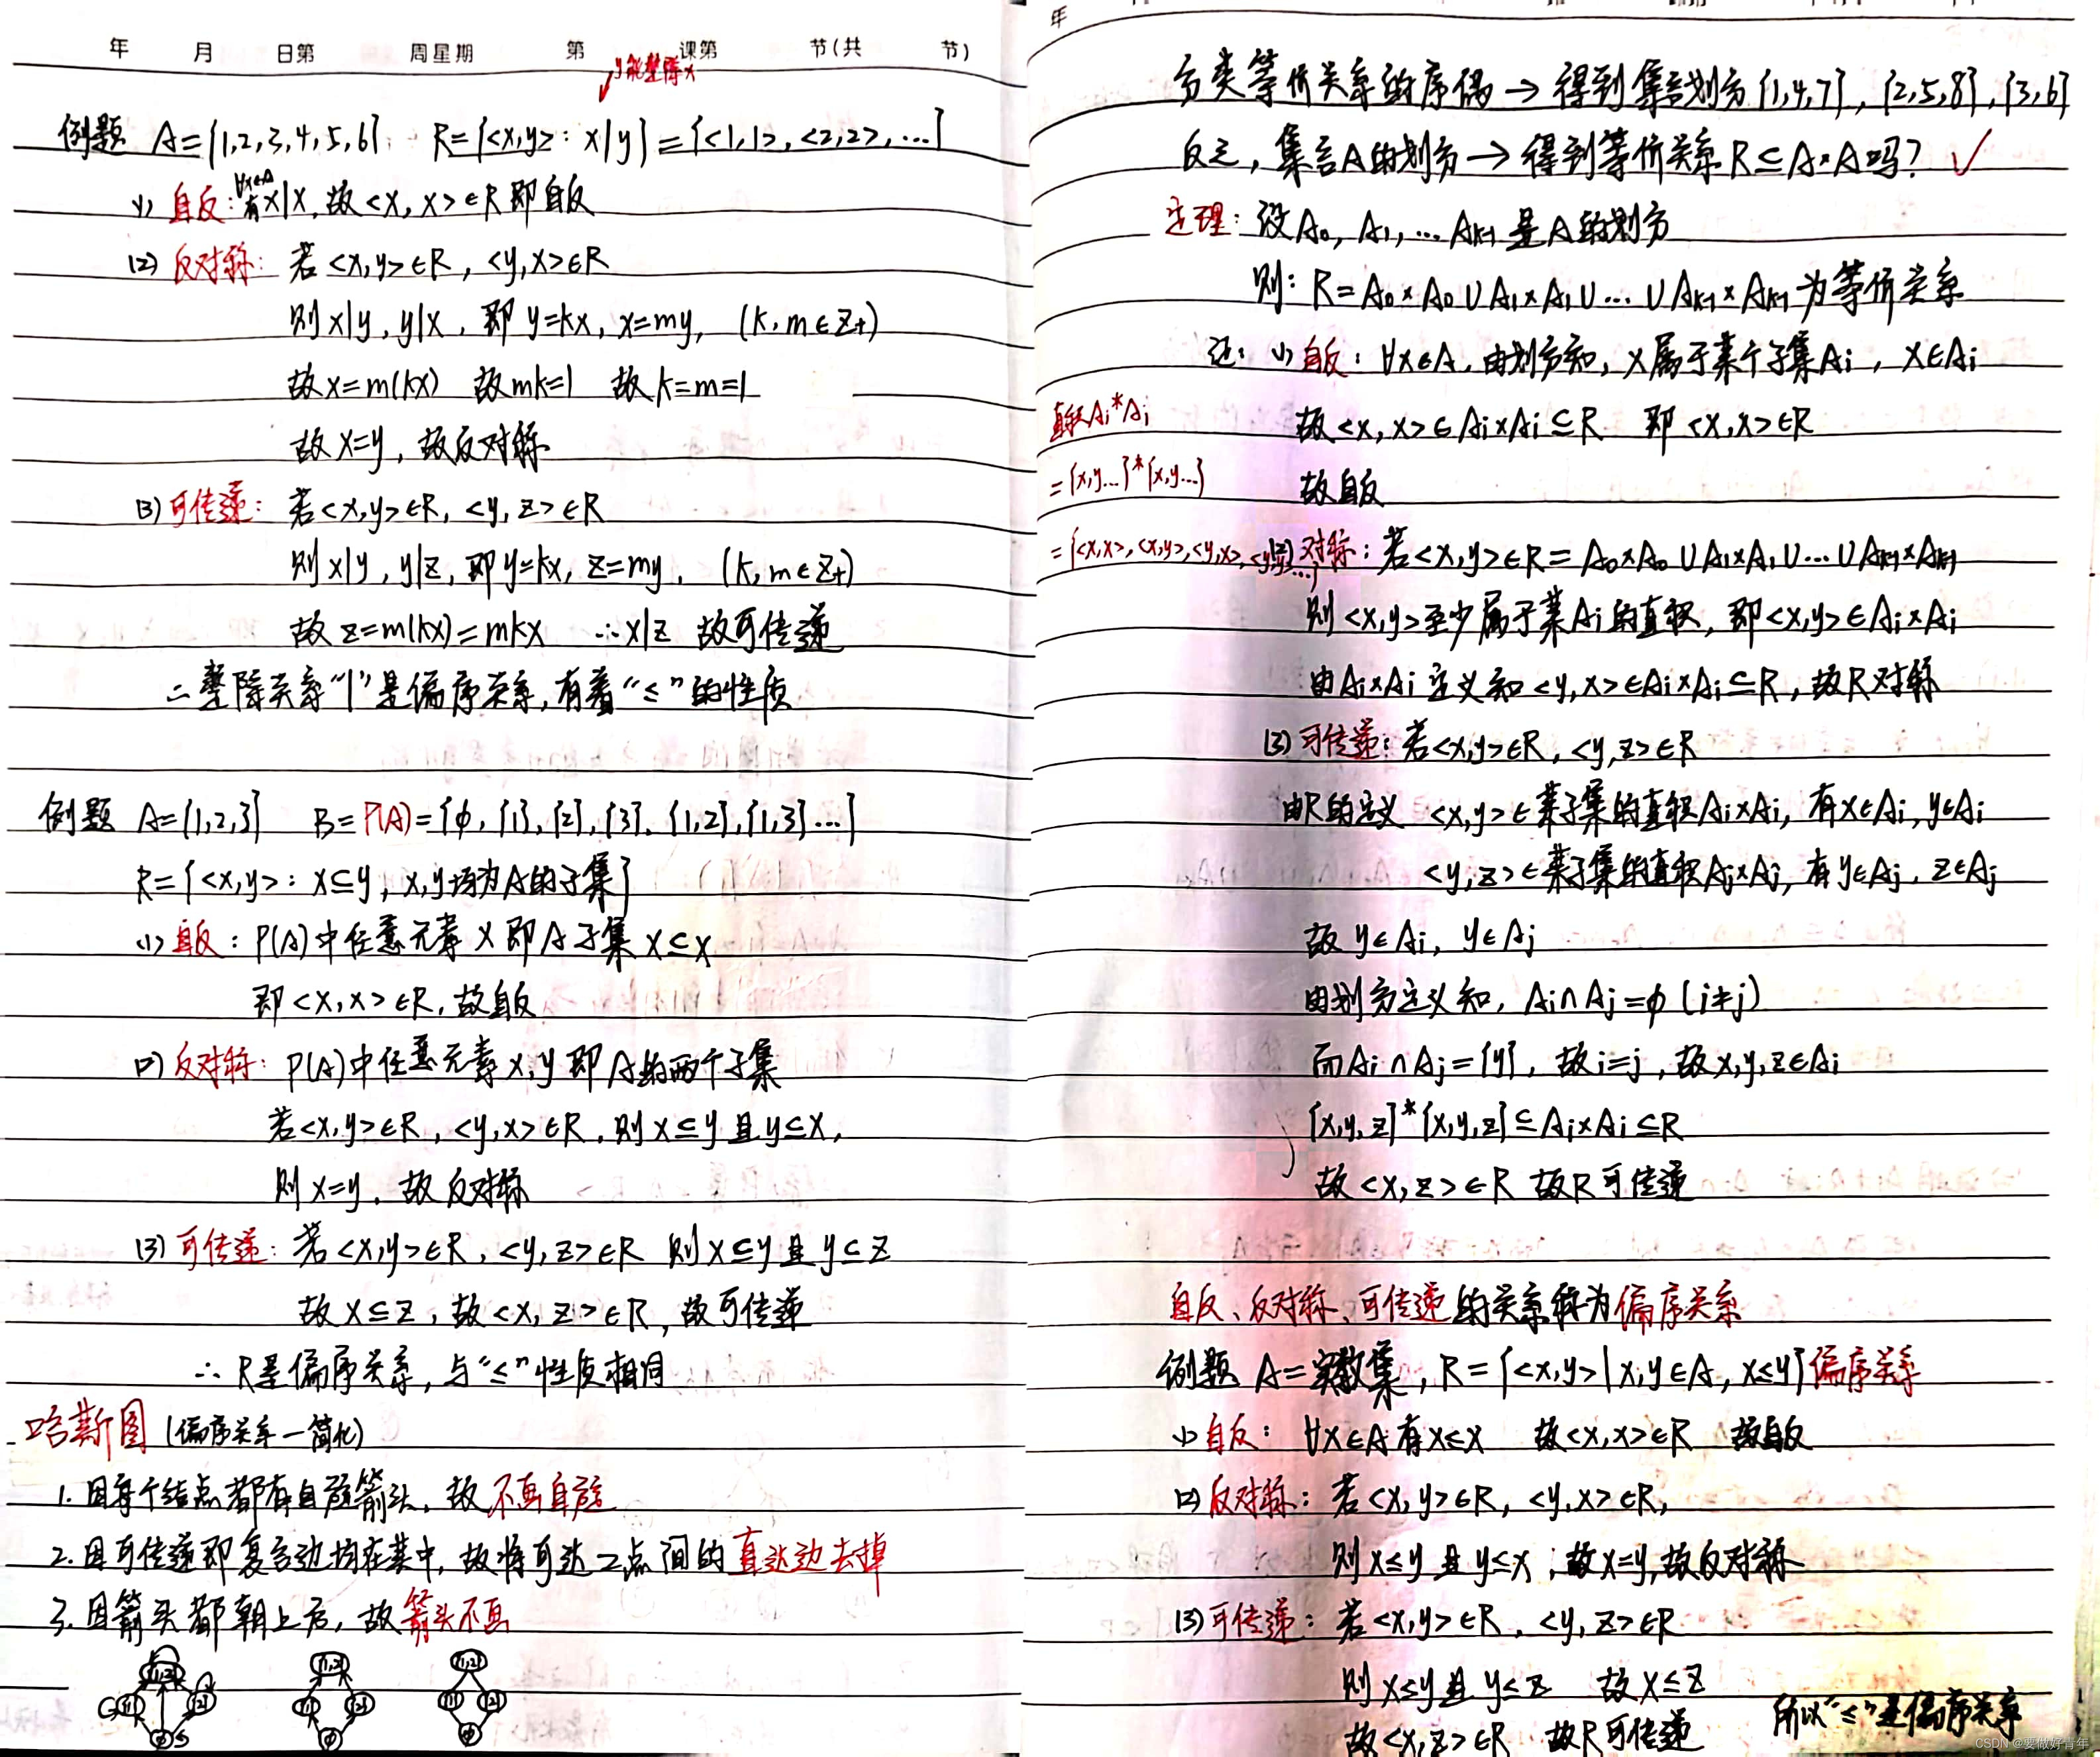 年 月 日第 周星期 第 课第 节(共 节)
y能整除x
例题 A={1,2,3,4,5,6} R={<x,y>: x|y}={<1,1>,<2,2>,…}
∀x∈A
(1) 自反: 有x|x, 故<x,x>∈R 即自反
(2) 反对称: 若<x,y>∈R, <y,x>∈R
则x|y, y|x, 即y=kx, x=my, (k,m∈Z+)
故x=m(kx) 故mk=1 故k=m=1
故x=y, 故反对称
(3) 可传递: 若<x,y>∈R, <y,z>∈R
则x|y, y|z, 即y=kx, z=my, (k,m∈Z+)
故z=m(kx)=mkx ∴x|z 故可传递
∴整除关系“|”是偏序关系,有着“≤”的性质
例题 A={1,2,3} B=P(A)={φ,{1},{2},{3},{1,2},{1,3}…}
R={<x,y>: x⊆y, x,y均为A的子集}
(1) 自反: P(A)中任意元素x即A子集x⊆x
即<x,x>∈R, 故自反
(2) 反对称: P(A)中任意元素x,y即A的两个子集
若<x,y>∈R, <y,x>∈R, 则x⊆y且y⊆x,
则x=y, 故反对称
(3) 可传递: 若<x,y>∈R, <y,z>∈R 则x⊆y且y⊆z
故x⊆z, 故<x,z>∈R, 故可传递
∴R是偏序关系, 与“≤”性质相同
哈斯图(偏序关系—简化)
1. 因每个结点都有自旋箭头, 故不画自旋
2. 因可传递即复合边均在其中, 故将可达二点间的直达边去掉
3. 因箭头都朝上方, 故箭头不画
{1,2} {1} {2} φ
{1,2} {1} {2} φ
{1,2} {1} {2} φ
年
分类等价关系的序偶→得到集合划分{1,4,7},{2,5,8},{3,6}
反之, 集合A的划分→得到等价关系R⊆A×A吗? ✓
定理: 设A0, A1, … Ak-1是A的划分
则: R=A0×A0∪A1×A1∪…∪Ak-1×Ak-1为等价关系
证: (1) 自反: ∀x∈A, 由划分知, x属于某个子集Ai, x∈Ai
故<x,x>∈Ai×Ai⊆R 即<x,x>∈R
故自反
直积Ai*Ai
={x,y…}*{x,y…}
={<x,x>,<x,y>,<y,x>,<y,y>…}
(2) 对称: 若<x,y>∈R=A0×A0∪A1×A1∪…∪Ak-1×Ak-1
则<x,y>至少属于某Ai的直积, 即<x,y>∈Ai×Ai
由Ai×Ai定义知<y,x>∈Ai×Ai⊆R, 故R对称
(3) 可传递: 若<x,y>∈R, <y,z>∈R
由R的定义 <x,y>∈某子集的直积Ai×Ai, 有x∈Ai, y∈Ai
<y,z>∈某子集的直积Aj×Aj, 有y∈Aj, z∈Aj
故y∈Ai, y∈Aj
由划分定义知, Ai∩Aj=φ (i≠j)
而Ai∩Aj={y}, 故i=j, 故x,y,z∈Ai
{x,y,z}*{x,y,z}⊆Ai×Ai⊆R
故<x,z>∈R 故R可传递
自反、反对称、可传递的关系称为偏序关系
例题 A=实数集, R={<x,y>|x,y∈A, x≤y}偏序关系
(1) 自反: ∀x∈A有x≤x 故<x,x>∈R 故自反
(2) 反对称: 若<x,y>∈R, <y,x>∈R,
则x≤y且y≤x, 故x=y, 故反对称
(3) 可传递: 若<x,y>∈R, <y,z>∈R
则x≤y且y≤z 故x≤z
故<x,z>∈R 故R可传递
所以“≤”是偏序关系
CSDN @要做好青年